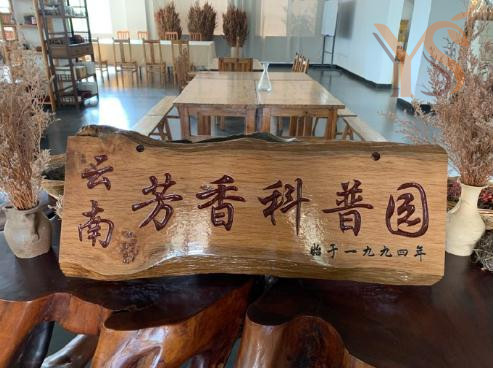 云南
芳香科普园
始于一九九四年